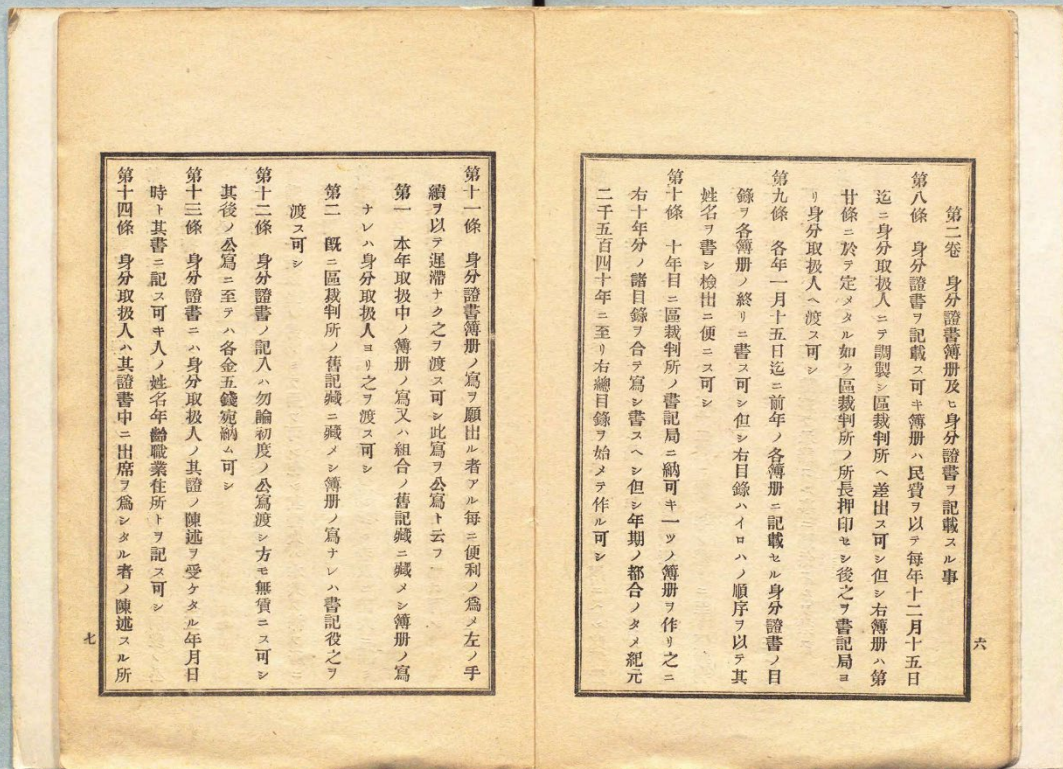 第二卷　身分證書簿册及ヒ身分證書ヲ記載スル事
第八條　身分證書ヲ記載ス可キ簿册ハ民費ヲ以テ每年十二月十五日
迄ニ身分取扱人ニテ調製シ區裁判所ヘ差出ス可シ但シ右簿册ハ第
廿條ニ於テ定メタル如ク區裁判所ノ所長押印セシ後之ヲ書記局ヨ
リ身分取扱人ヘ渡ス可シ
第九條　各年一月十五日迄ニ前年ノ各簿册ニ記載セル身分證書ノ目
錄ヲ各簿册ノ終リニ書ス可シ但シ右目錄ハイロハノ順序ヲ以テ其
姓名ヲ書シ檢出ニ便ニス可シ
第十條　十年目ニ區裁判所ノ書記局ニ納可キ一ッノ簿册ヲ作リ之ニ
右十年分ノ諸目錄ヲ合テ寫シ書スヘシ但シ年期ノ都合ノタメ紀元
二千五百四十年ニ至リ右總目錄ヲ始メテ作ル可シ
六
第十一條　身分證書簿册ノ寫ヲ願出ル者アル每ニ便利ノ爲メ左ノ手
續ヲ以テ遲滯ナク之ヲ渡ス可シ此寫ヲ公寫ト云フ
第一　本年取扱中ノ簿册ノ寫又ハ組合ノ舊記藏ニ藏メシ簿册ノ寫
ナレハ身分取扱人ヨリ之ヲ渡ス可シ
第二　旣ニ區裁判所ノ舊記藏ニ藏メシ簿册ノ寫ナレハ書記役之ヲ
渡ス可シ
第十二條　身分證書ノ記入ハ勿論初度ノ公寫渡シ方モ無賃ニス可シ
其後ノ公寫ニ至テハ各金五錢宛納ム可シ
第十三條　身分證書ニハ身分取扱人ノ其證ノ陳述ヲ受ケタル年月日
時ト其書ニ記ス可キ人ノ姓名年齡職業住所トヲ記ス可シ
第十四條　身分取扱人ハ其證書中ニ出席ヲ爲シタル者ノ陳述スル所
七